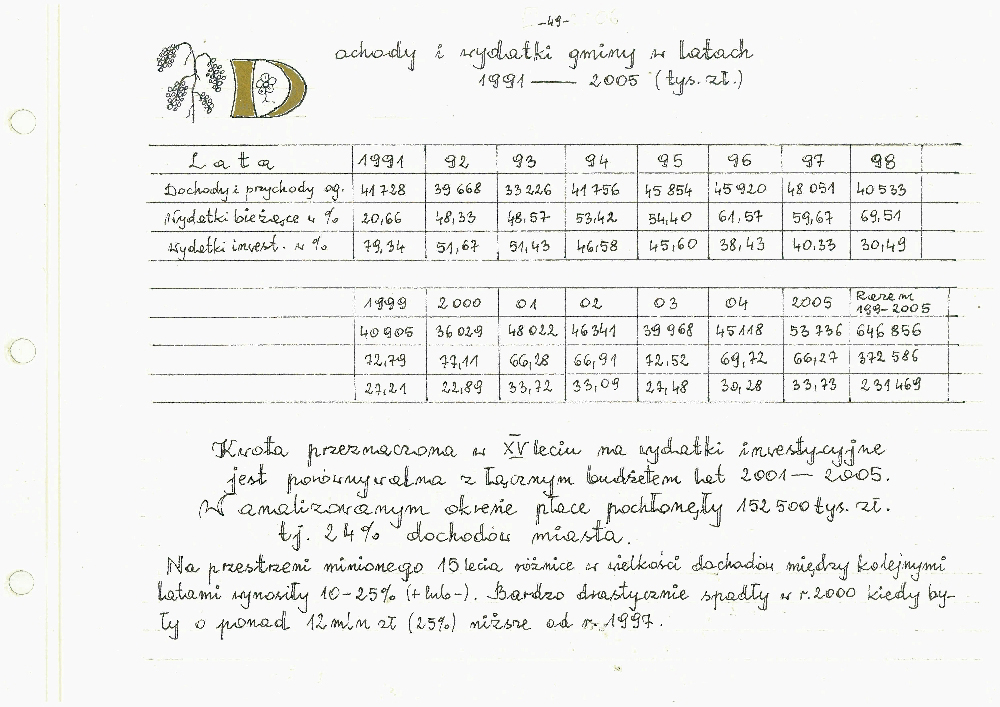 -49-
Dochody i wydatki gminy w latach
1991 — 2005 (tys. zł.)
Lata 1991 92 93 94 95 96 97 98
Dochody i przychody og. 41 728 39 668 33 226 41 756 45 854 45 920 48 051 40 533
Wydatki bieżące w % 20,66 48,33 48,57 53,42 54,40 61,57 59,67 69,51
wydatki invest. w % 79,34 51,67 51,43 46,58 45,60 38,43 40,33 30,49
1999 2000 01 02 03 04 2005 Razem
199-2005
40 905 36 029 48 022 46 341 39 968 45 118 53 736 646 856
72,79 77,11 66,28 66,91 72,52 69,72 66,27 372 586
27,21 22,89 33,72 33,09 27,48 30,28 33,73 231 469
Kwota przeznaczona w XV leciu na wydatki inwestycyjne
jest porównywalna z łącznym budżetem lat 2001 — 2005.
W analizowanym okresie płace pochłonęły 152 500 tys. zł.
tj. 24% dochodów miasta.
Na przestrzeni minionego 15 lecia różnice w wielkości dochodów między kolejnymi
latami wynosiły 10-25% (+ lub -). Bardzo drastycznie spadły w r. 2000 kiedy by-
ły o ponad 12 mln zł (25%) niższe od r. 1997.